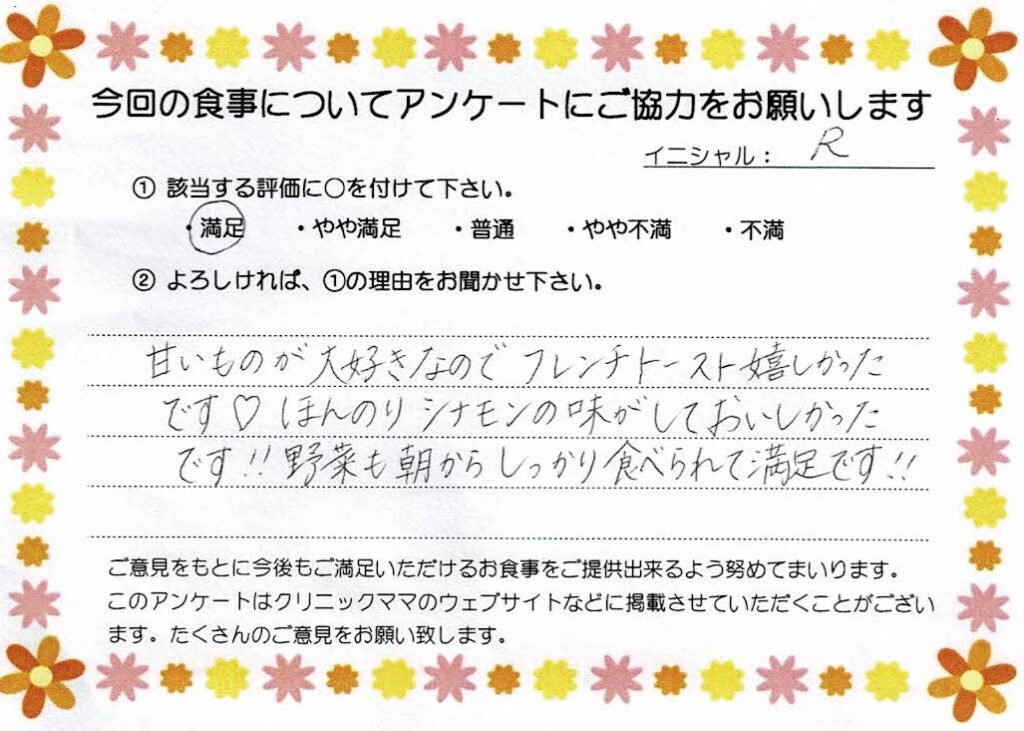 今回の食事についてアンケートにご協力をお願いします
イニシャル： R
① 該当する評価に○を付けて下さい。
・満足 ・やや満足 ・普通 ・やや不満 ・不満
② よろしければ、①の理由をお聞かせ下さい。
甘いものが大好きなのでフレンチトースト嬉しかった
です♡ ほんのりシナモンの味がしておいしかった
です!! 野菜も朝からしっかり食べられて満足です!!
ご意見をもとに今後もご満足いただけるお食事をご提供出来るよう努めてまいります。
このアンケートはクリニックママのウェブサイトなどに掲載させていただくことがござい
ます。たくさんのご意見をお願い致します。